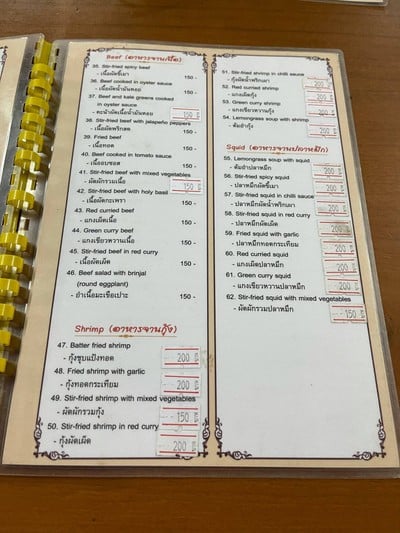 Beef (อาหารจานเนื้อ)
35. Stir-fried spicy beef
- เนื้อผัดขี้เมา 150 -
36. Beef cooked in oyster sauce
- เนื้อผัดน้ำมันหอย 150 -
37. Beef and kale greens cooked
in oyster sauce
- คะน้าผัดเนื้อน้ำมันหอย 150 -
38. Stir-fried beef with jalapeño peppers
- เนื้อผัดพริกสด 150 -
39. Fried beef
- เนื้อทอด 150 -
40. Beef cooked in tomato sauce
- เนื้ออบซอส 150 -
41. Stir-fried beef with mixed vegetables
- ผัดผักรวมเนื้อ 150 -
42. Stir-fried beef with holy basil
- เนื้อผัดกะเพรา 150 -
43. Red curried beef
- แกงเผ็ดเนื้อ 150 -
44. Green curry beef
- แกงเขียวหวานเนื้อ 150 -
45. Stir-fried beef in red curry
- เนื้อผัดเผ็ด 150 -
46. Beef salad with brinjal
(round eggplant)
- ยำเนื้อมะเขือเปาะ 150 -
Shrimp (อาหารจานกุ้ง)
47. Batter fried shrimp
- กุ้งชุบแป้งทอด 200
48. Fried shrimp with garlic
- กุ้งทอดกระเทียม 200
49. Stir-fried shrimp with mixed vegetables
- ผัดผักรวมกุ้ง 150
50. Stir-fried shrimp in red curry
- กุ้งผัดเผ็ด 200
51. Stir-fried shrimp in chili sauce
- กุ้งผัดน้ำพริกเผา 200
52. Red curried shrimp
- แกงเผ็ดกุ้ง 200
53. Green curry shrimp
- แกงเขียวหวานกุ้ง 200
54. Lemongrass soup with shrimp
- ต้มยำกุ้ง 200
Squid (อาหารจานปลาหมึก)
55. Lemongrass soup with squid
- ต้มยำปลาหมึก 200
56. Stir-fried spicy squid
- ปลาหมึกผัดขี้เมา 200
57. Stir-fried squid in chili sauce
- ปลาหมึกผัดน้ำพริกเผา 200
58. Stir-fried squid in red curry
- ปลาหมึกผัดเผ็ด 200
59. Fried squid with garlic
- ปลาหมึกทอดกระเทียม 200
60. Red curried squid
- แกงเผ็ดปลาหมึก 200
61. Green curry squid
- แกงเขียวหวานปลาหมึก 200
62. Stir-fried squid with mixed vegetables
- ผัดผักรวมปลาหมึก 150